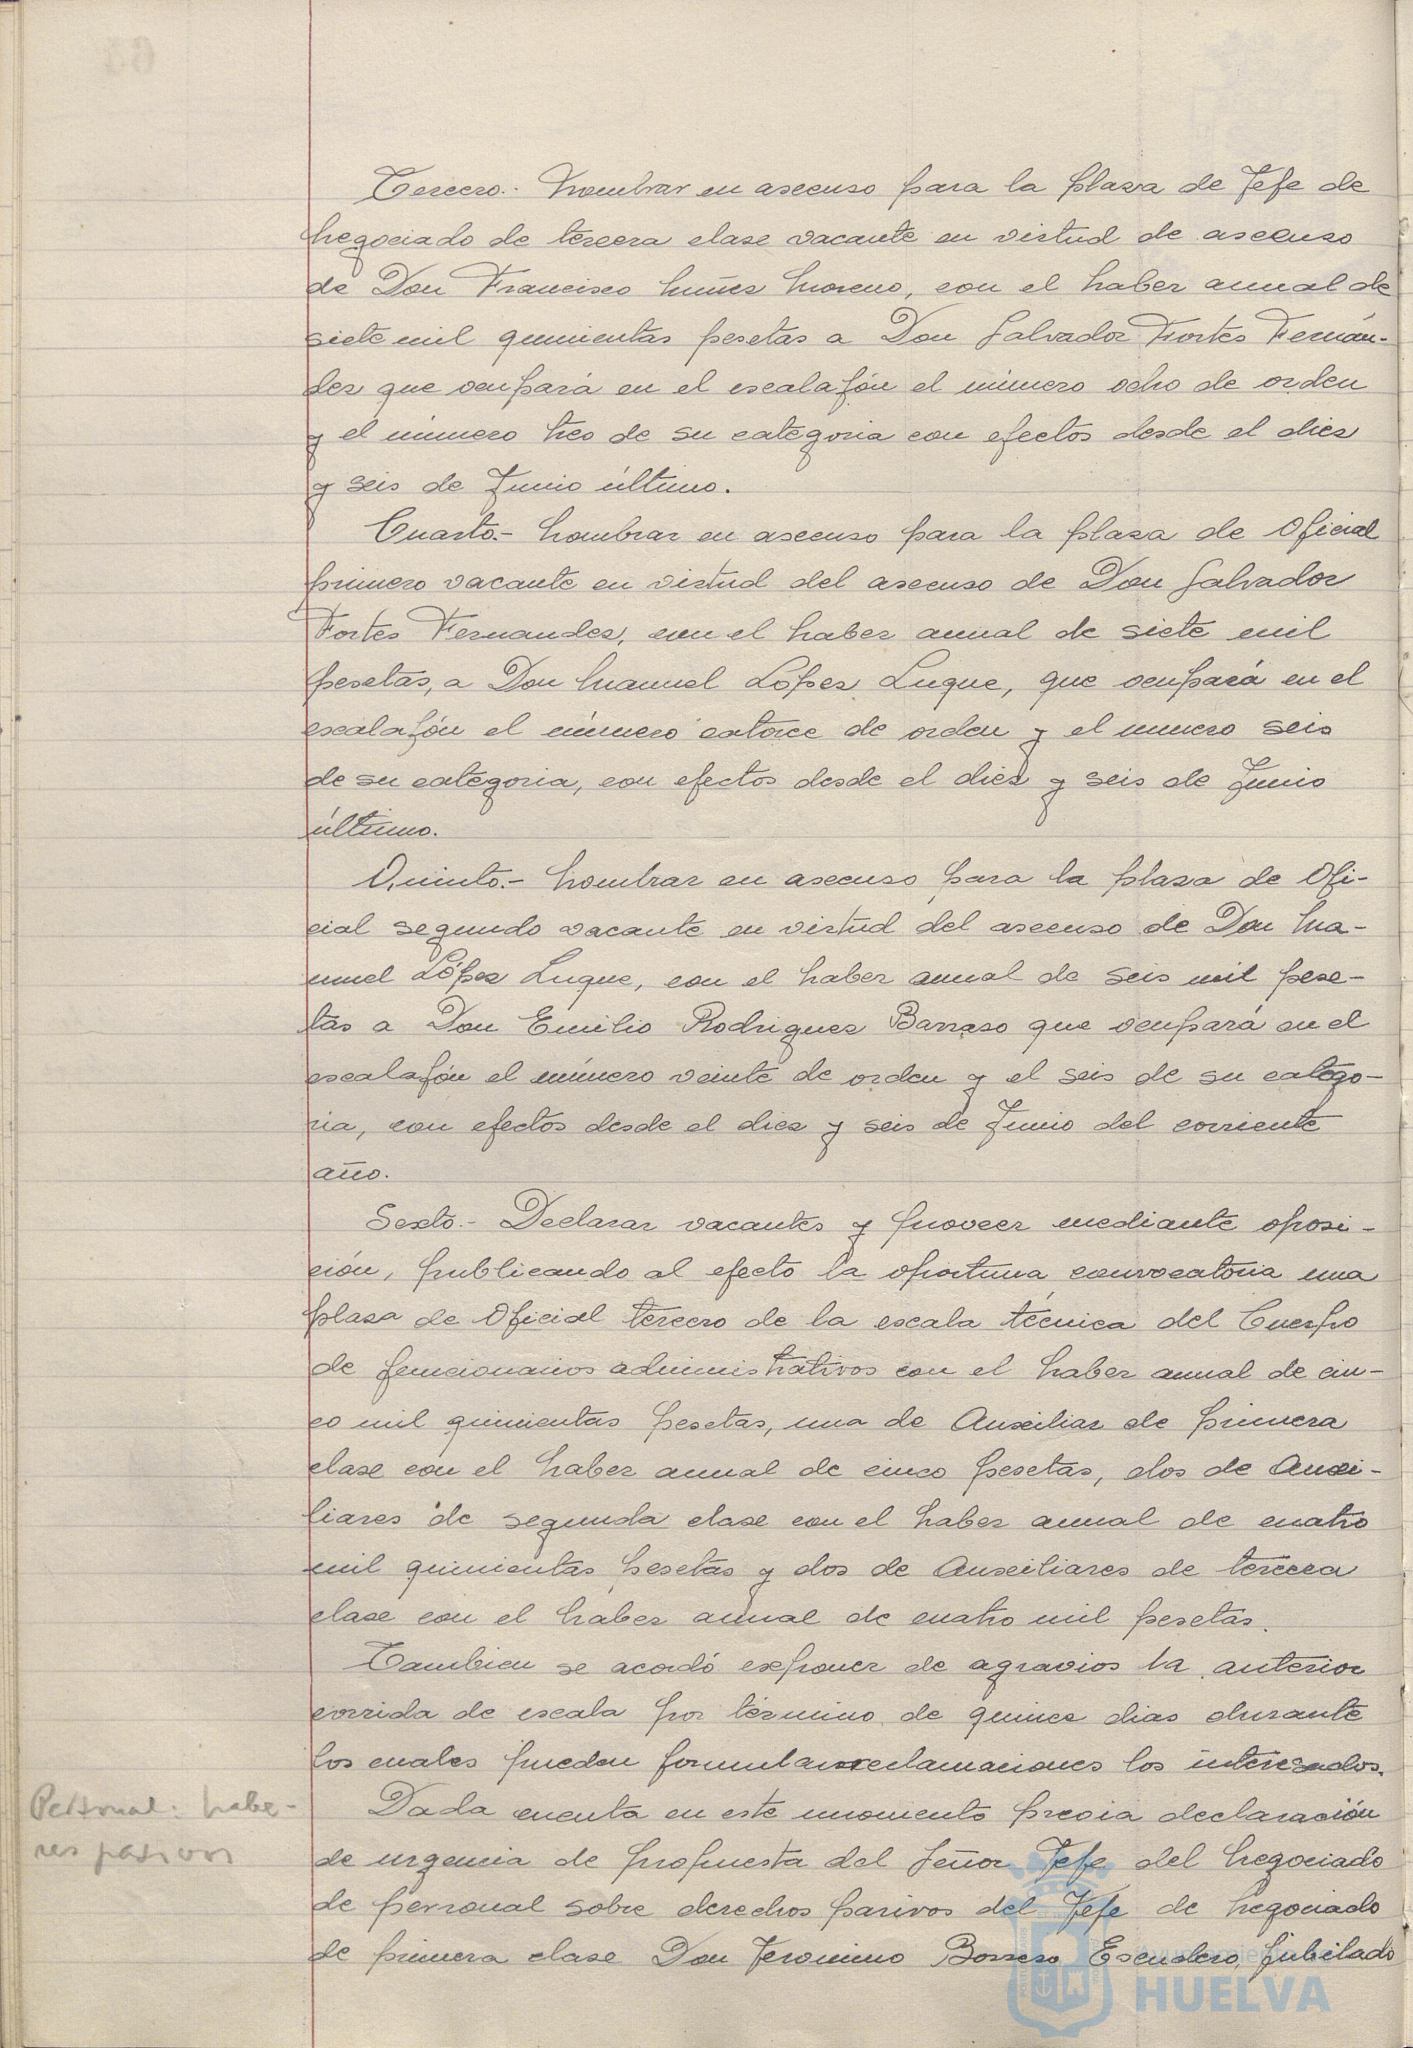 Tercero.- Nombrar en ascenso para la plaza de Jefe de
Negociado de tercera clase vacante en virtud de ascenso
de Don Francisco Nuñez Moreno, con el haber anual de
siete mil quinientas pesetas a Don Salvador Fortes Fernán-
dez que ocupará en el escalafón el número ocho de orden
y el número tres de su categoria con efectos desde el diez
y seis de Junio último.
Cuarto.- Nombrar en ascenso para la plaza de Oficial
primero vacante en virtud del ascenso de Don Salvador
Fortes Fernandez, con el haber anual de siete mil
pesetas, a Don Manuel López Luque, que ocupará en el
escalafón el número catorce de orden y el numero seis
de su categoria, con efectos desde el diez y seis de Junio
último.
Quinto.- Nombrar en ascenso para la plaza de Ofi-
cial segundo vacante en virtud del ascenso de Don Ma-
nuel López Luque, con el haber anual de seis mil pese-
tas a Don Emilio Rodriguez Barraso que ocupará en el
escalafón el número veinte de orden y el seis de su catego-
ria, con efectos desde el diez y seis de Junio del corriente
año.
Sexto.- Declarar vacantes y proveer mediante oposi-
ción, publicando al efecto la oportuna convocatoria una
plaza de Oficial tercero de la escala técnica del Cuerpo
de funcionarios administrativos con el haber anual de cin-
co mil quinientas pesetas, una de Auxiliar de primera
clase con el haber anual de cinco pesetas, dos de Auxi-
liares de segunda clase con el haber anual de cuatro
mil quinientas pesetas y dos de Auxiliares de tercera
clase con el haber anual de cuatro mil pesetas.
Tambien se acordó exponer de agravios la anterior
corrida de escala por término de quince dias durante
los cuales pueden formular reclamaciones los interesados.
Personal: habe-
res pasivos
Dada cuenta en este momento previa declaración
de urgencia de propuesta del Señor Jefe del Negociado
de personal sobre derechos pasivos del Jefe de Negociado
de primera clase Don Jeronimo Borrero Escudero, jubilado
Ayuntamiento
HUELVA